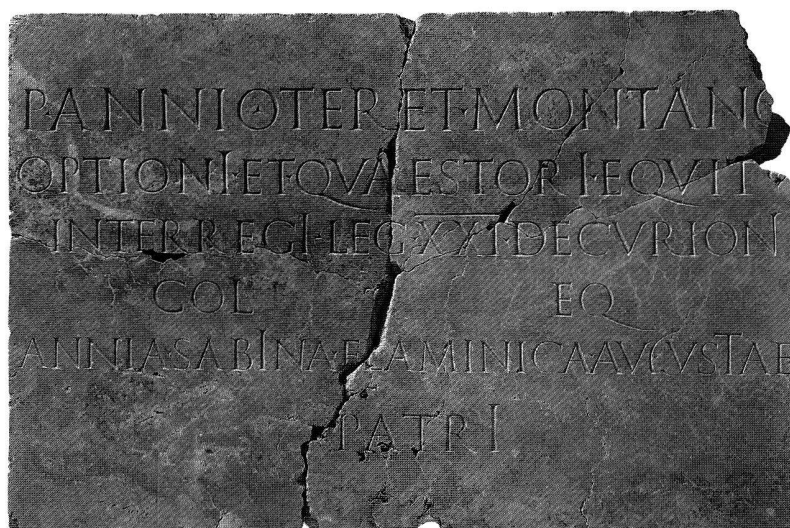 P ANNIO TER ET·MONTANO
OPTIONI·ET·QVAESTORI·EQVIT
INTERREGI·LEG·XXI·DECVRION
COL EQ
ANNIA SABINA FLAMINICA AVGVSTAE
PATRI